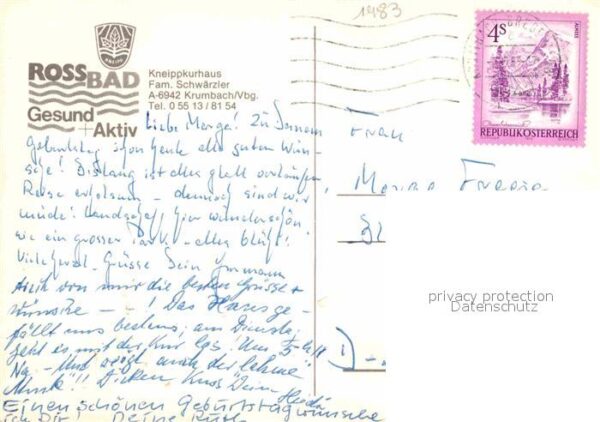 1983
KNEIPP
ROSSBAD
Gesund
+Aktiv
Kneippkurhaus
Fam. Schwärzler
A-6942 Krumbach/Vbg.
Tel. 0 55 13 / 81 54
4S
ALMSEE
REPUBLIK ÖSTERREICH
Liebe! Zu Deinem
Geburtstag schon heute alle guten Wün-
sche! Bislang ist alles glatt verlaufen,
Reise erholsam - dennoch sind wir
müde! Landschaft hier wunderschön
wie ein grosser Park - alles blüht!
Vielmal - Grüsse Dein Hermann
Auch von mir die besten Grüsse +
Wünsche - - ! Das Haus ge-
fällt uns bestens, am Dienstag
geht es mit der Kur los! Um
Na. - Und auch der
Musik"!! Dicken Kuss Deine Heidi
Einen schönen Geburtstag wünsche
ich Dir! Deine Ruth
Frau
D-
privacy protection
Datenschutz